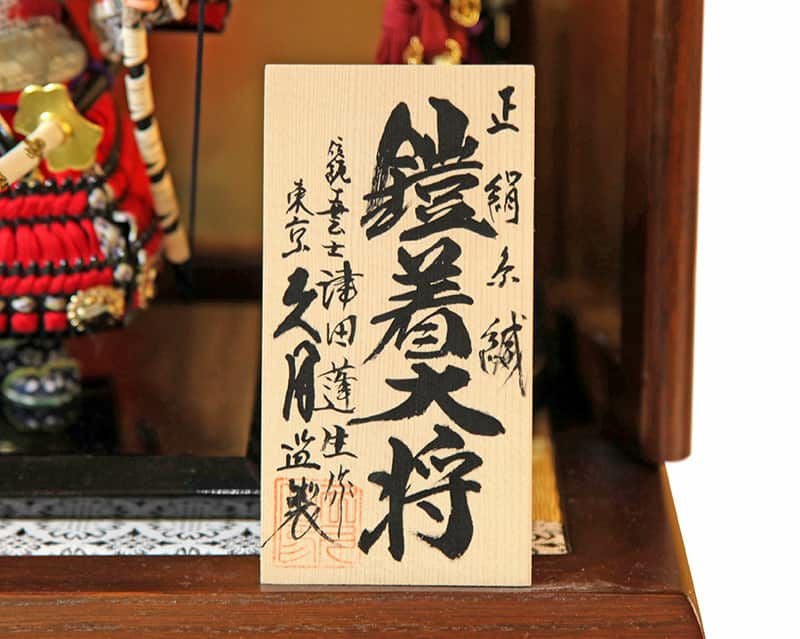 正絹糸縅
鎧着大将
伝統工芸士津田蓬生作
東京久月監製